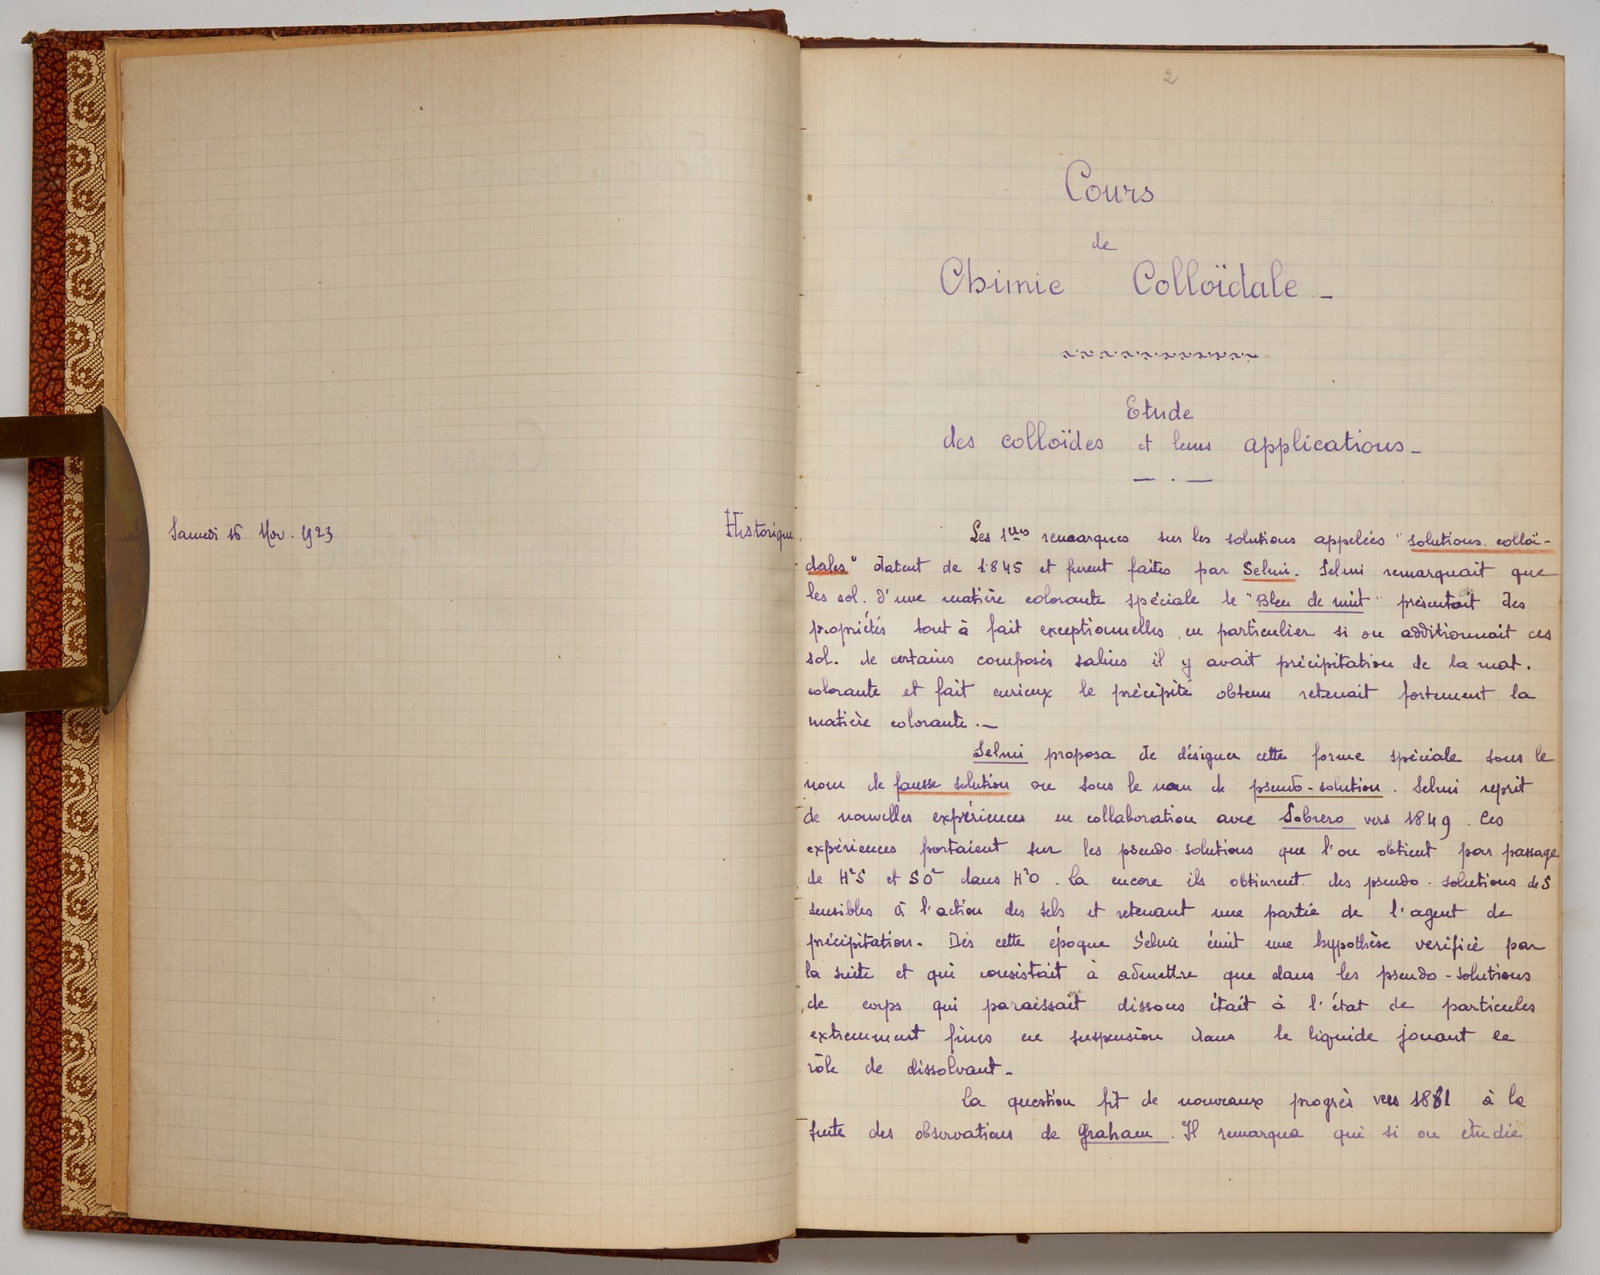 2
Cours
de
Chimie Colloïdale _
Etude
des colloïdes et leurs applications _
Samedi 16 Nov. 1923
Historique
Les 1ères remarques sur les solutions appelées "solutions colloï-
dales" datent de 1845 et furent faites par Selmi. Selmi remarquait que
les sol. d'une matière colorante spéciale le "Bleu de nuit" présentait des
propriétés tout à fait exceptionnelles en particulier si on additionnait ces
sol. de certains composés salins il y avait précipitation de la mat.
colorante et fait curieux le précipité obtenu retenait fortement la
matière colorante. _
Selmi proposa de désigner cette forme spéciale sous le
nom de fausse solution ou sous le nom de pseudo-solution. Selmi reprit
de nouvelles expériences en collaboration avec Sobrero vers 1849. Ces
expériences portaient sur les pseudo-solutions que l'on obtient par passage
de H²S et SO² dans H²O. La encore ils obtinrent des pseudo-solutions de S
sensibles à l'action des sels et retenant une partie de l'agent de
précipitation. Dès cette époque Selmi émit une hypothèse verifiée par
la suite et qui consistait à admettre que dans les pseudo-solutions
de corps qui paraissait dissous était à l'état de particules
extremement fines en suspension dans le liquide jouant le
rôle de dissolvant _
La question fit de nouveaux progrès vers 1861 à la
suite des observations de Graham. Il remarqua que si on étudie